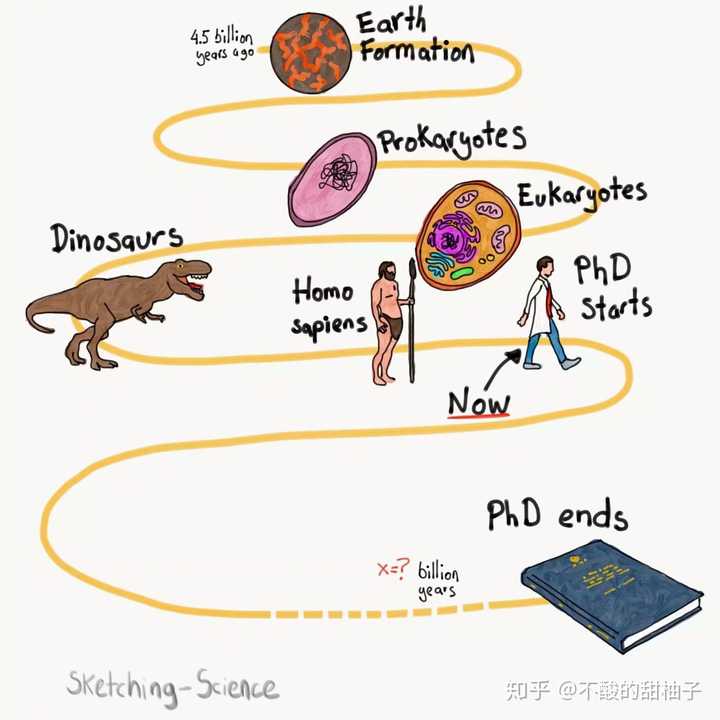 4.5 billion
years ago
Earth
Formation
Prokaryotes
Eukaryotes
Dinosaurs
Homo
sapiens
PhD
Starts
Now
PhD ends
x=? billion
years
Sketching-Science
知乎 @不酸的甜柚子